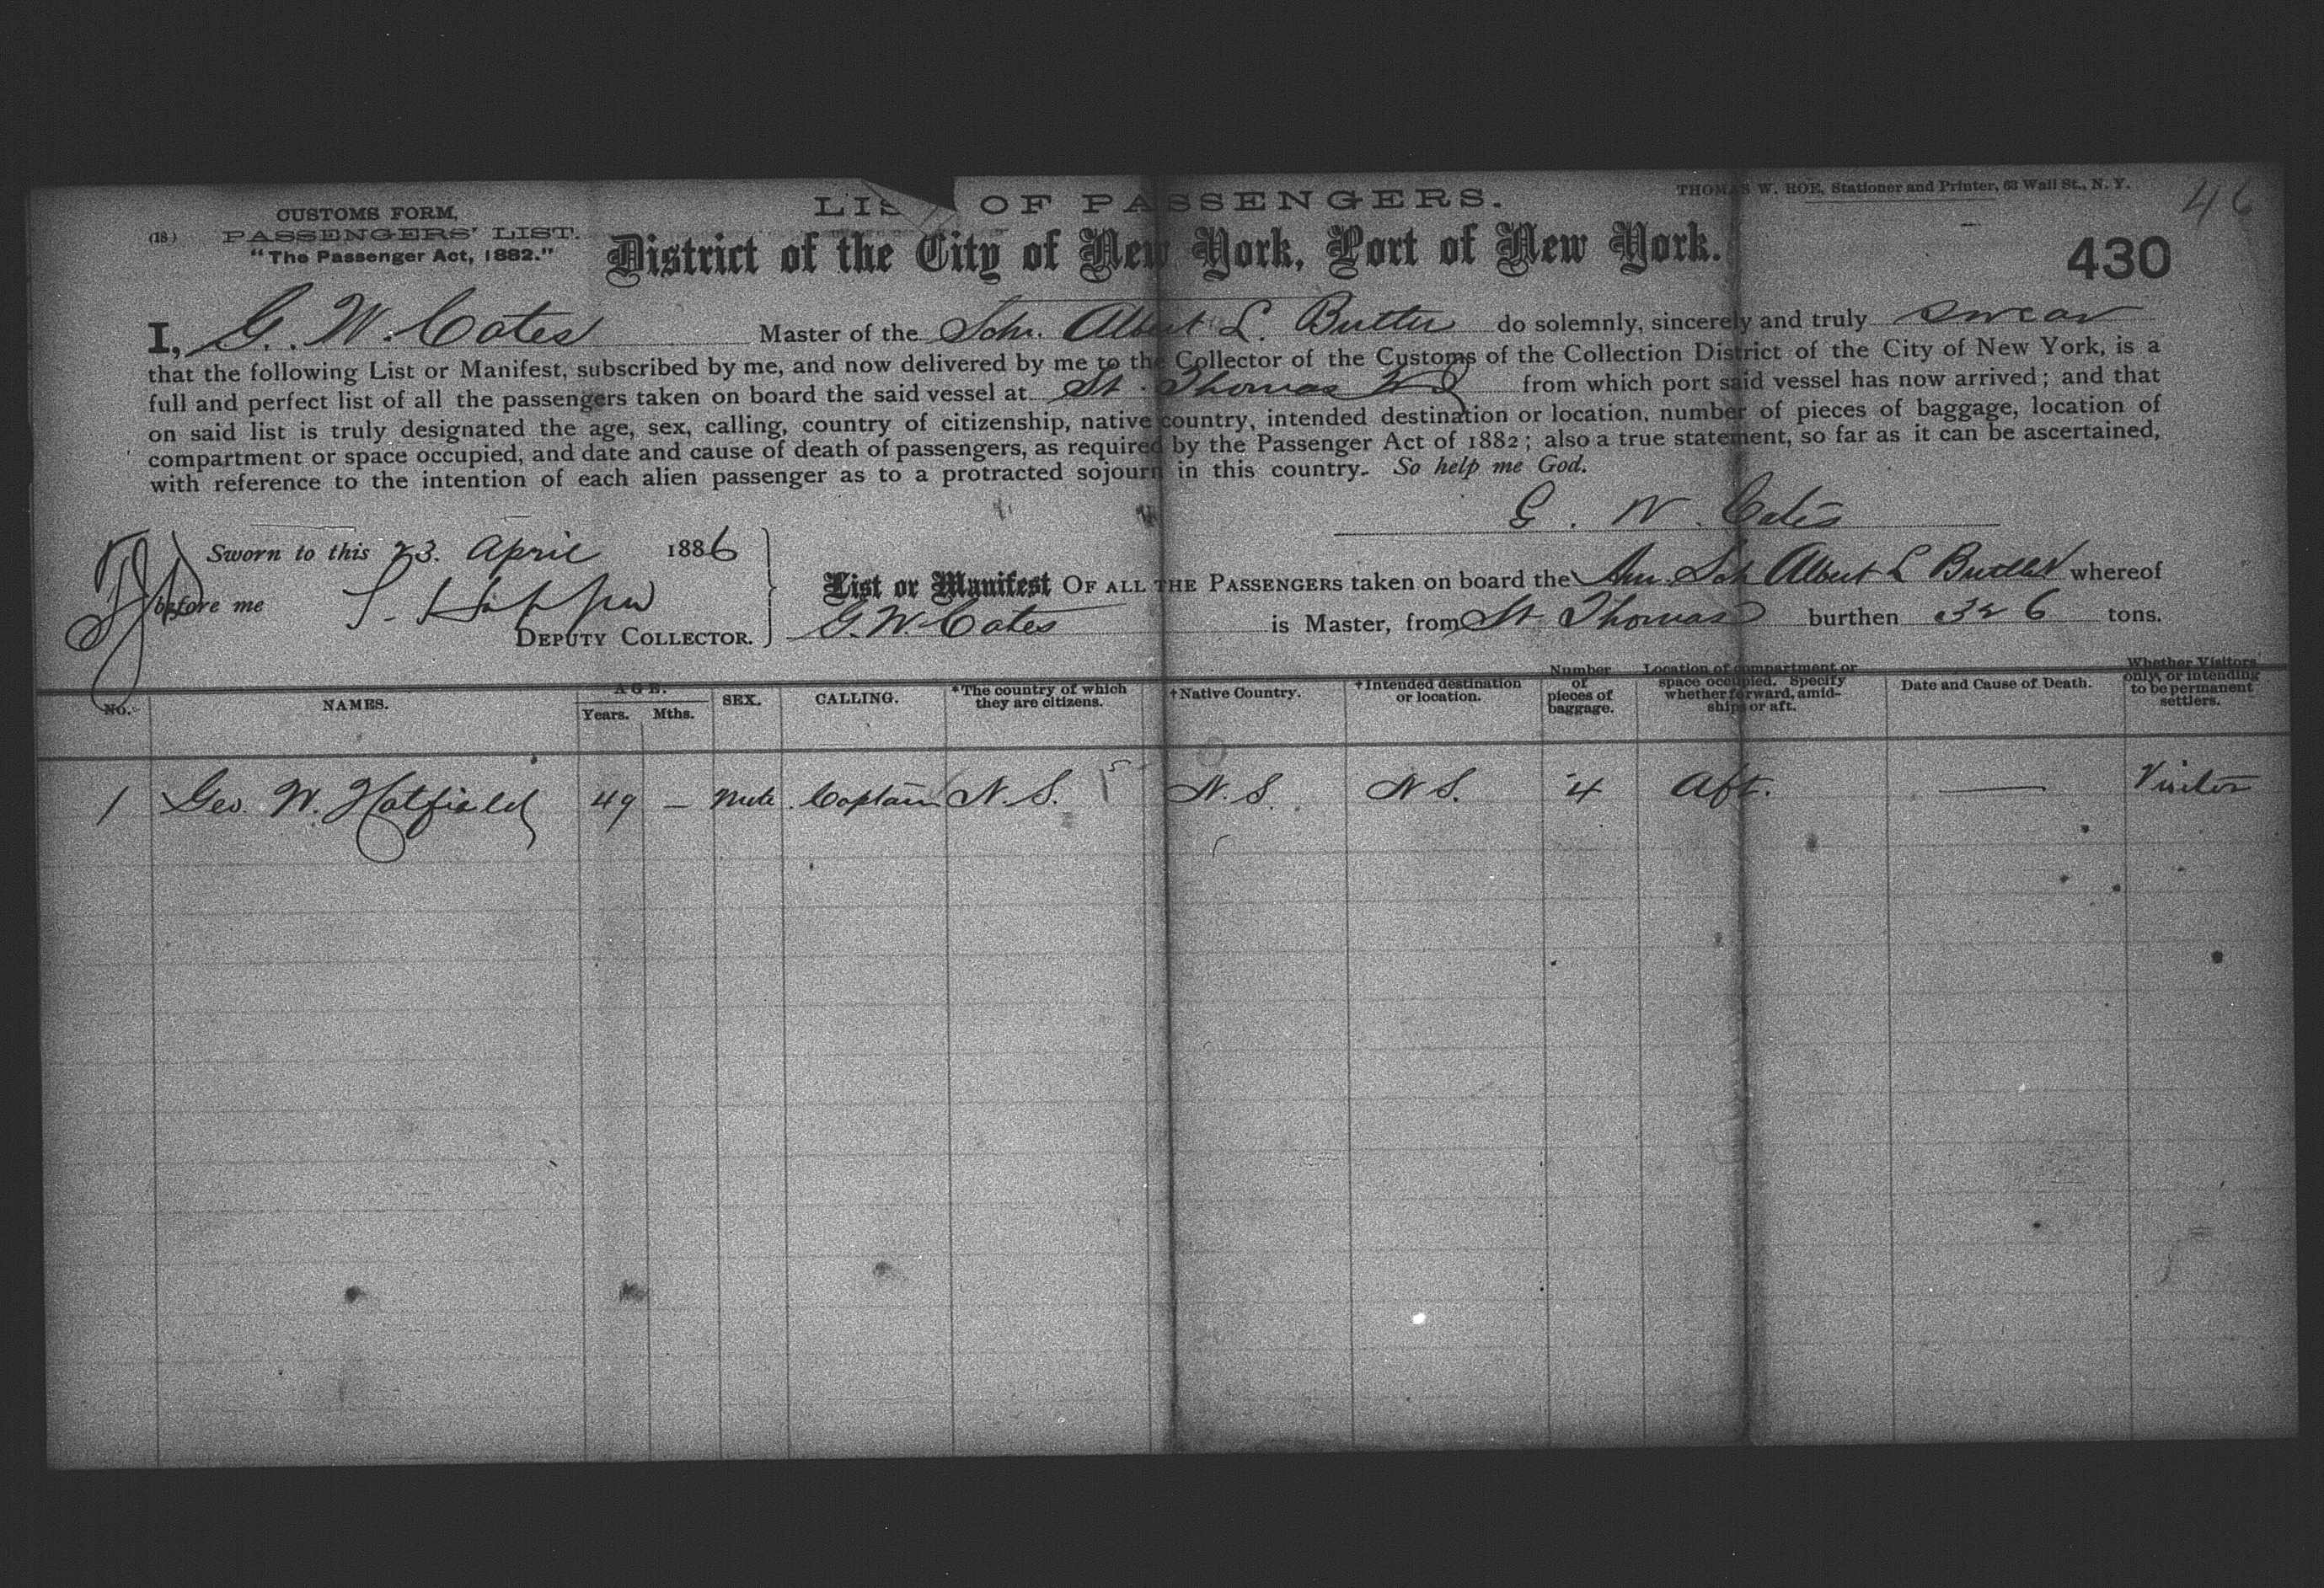 THOMAS W. ROE, Stationer and Printer, 63 Wall St., N. Y.
46
LIST OF PASSENGERS.
CUSTOMS FORM,
(18) PASSENGERS' LIST.
"The Passenger Act, 1882."
District of the City of New York, Port of New York.
430
I, G. W. Cates Master of the Schr. Albert L. Butler do solemnly, sincerely and truly swear
that the following List or Manifest, subscribed by me, and now delivered by me to the Collector of the Customs of the Collection District of the City of New York, is a
full and perfect list of all the passengers taken on board the said vessel at St. Thomas W I from which port said vessel has now arrived; and that
on said list is truly designated the age, sex, calling, country of citizenship, native country, intended destination or location, number of pieces of baggage, location of
compartment or space occupied, and date and cause of death of passengers, as required by the Passenger Act of 1882; also a true statement, so far as it can be ascertained,
with reference to the intention of each alien passenger as to a protracted sojourn in this country. So help me God.
G. W. Cates
Sworn to this 23. April 1886
before me
DEPUTY COLLECTOR.
List or Manifest OF ALL THE PASSENGERS taken on board the Am. Sch Albert L Butler whereof
G. W. Cates is Master, from St Thomas burthen 326 tons.
No. NAMES. AGE. Years. Mths. SEX. CALLING. *The country of which they are citizens. †Native Country. †Intended destination or location. Number of pieces of baggage. Location of compartment or space occupied. Specify whether forward, amidships or aft. Date and Cause of Death. Whether Visitors only, or intending to be permanent settlers.
1 Geo. W. Hatfield 49 — Male Captain N. S. N. S. N S. 4 Aft. — Visitor